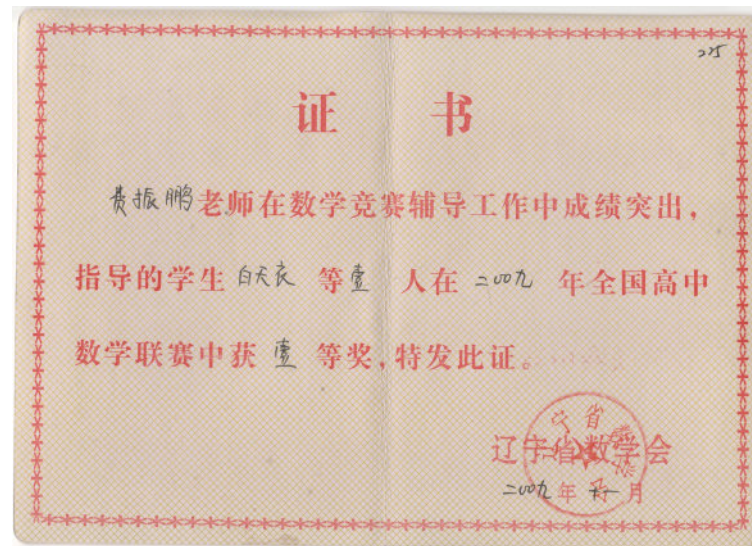 225
证 书
费振鹏老师在数学竞赛辅导工作中成绩突出，
指导的学生白天衣等壹人在二〇〇九年全国高中
数学联赛中获壹等奖，特发此证。
辽宁省数学会
二〇〇九年十一月